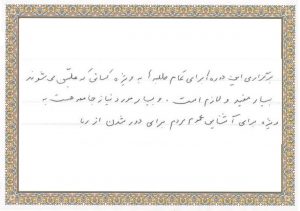 برگزاری این دوره برای تمام طلبه ها به ویژه کسانی که مبلغ می شوند
بسیار مفید و لازم است . و بسیار مورد نیاز جامعه هست به
ویژه برای آشنایی عموم مردم برای دور شدن از ربا